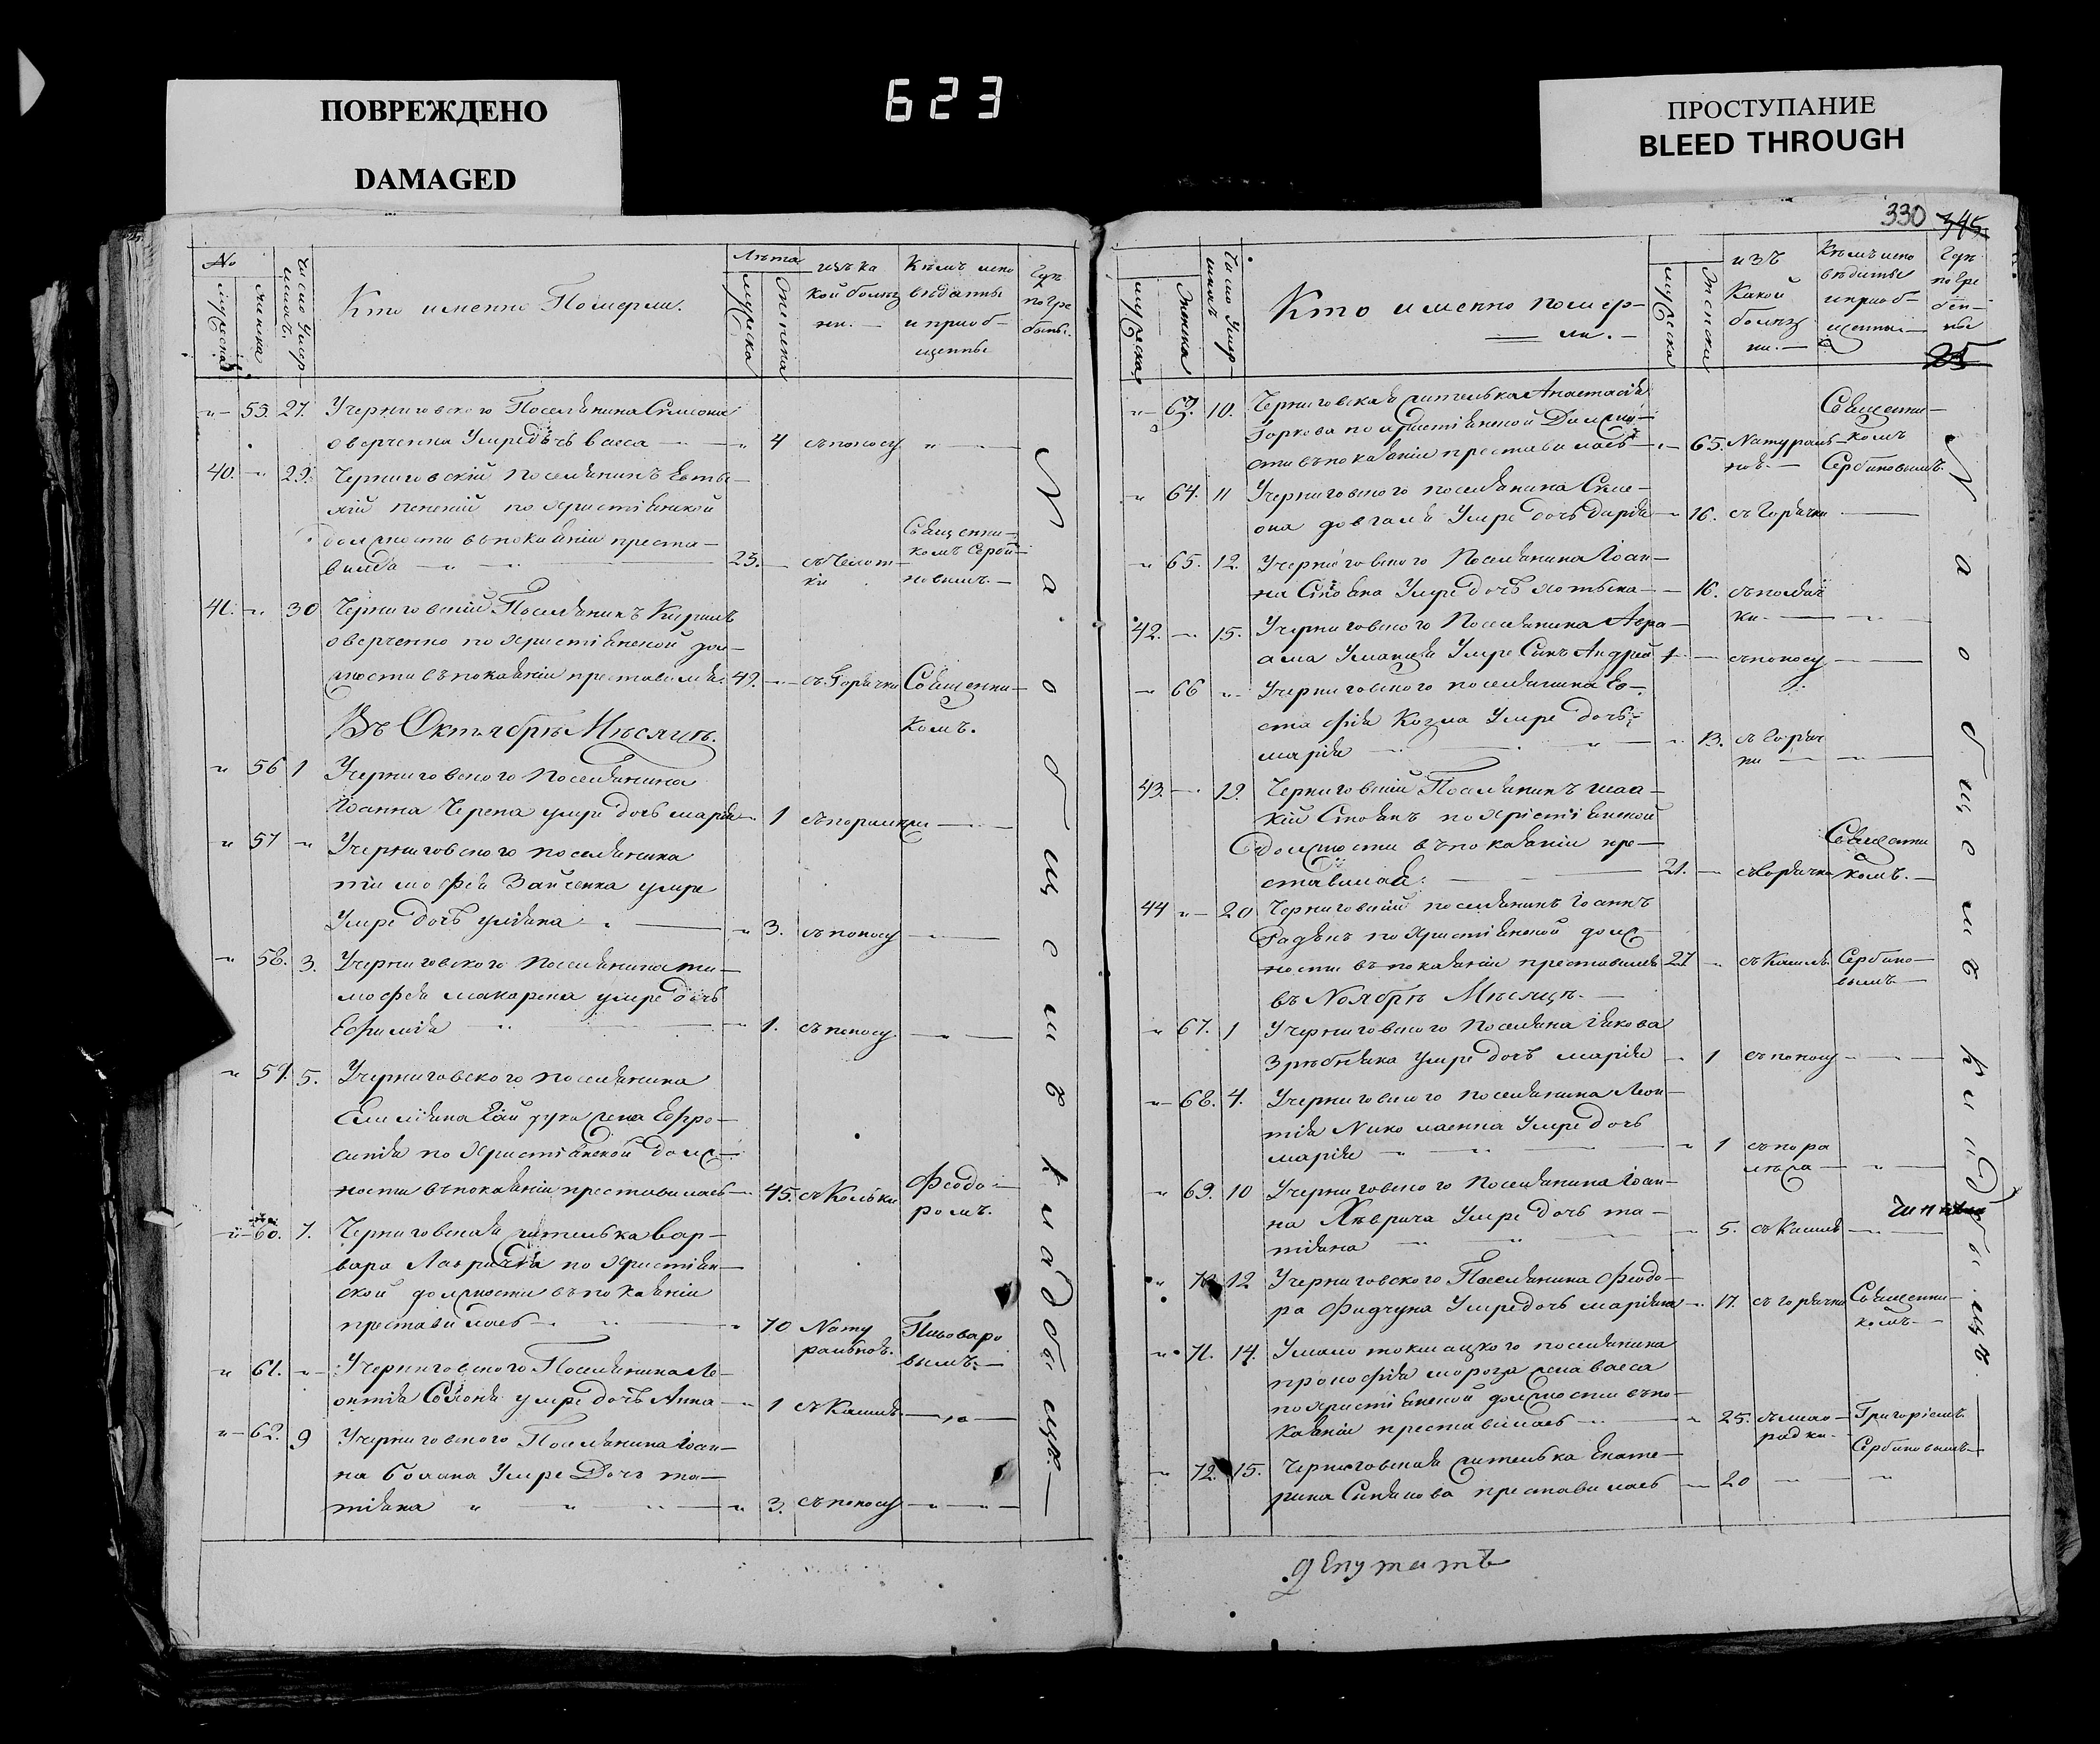 ПОВРЕЖДЕНО
DAMAGED
623
ПРОСТУПАНИЕ
BLEED THROUGH
330 345
№ Число умер-
мужеска женска шихъ.
Кто именно Померли.
Лѣта
мужеска женска
изъ ка
кой болѣз
ни. —
Кѣмъ испо
вѣданы
и приоб-
щенны
Гдѣ
погре
бены.
"— 55. 27. Учерниговского Поселянина Симеона
Оверченка Умре дочъ васса — — " 4 съ поносу " —
40. — " 29. Черниговскій Поселянинъ Евты-
хій по христіянской
должности въ покаяніи преста-
вился — " — " — 23. —
Священни-
комъ Серби-
новымъ. —
41. — " 30 Черниговскій Поселянинъ Кирилъ
Оверченко по христіянской дол-
жности въ покаяніи преставился. 49. — съ Горячки Священни-
комъ.
Въ Октябрѣ Мѣсяцѣ.
" 56 1 Учерниговского Поселянина
Іоанна Черепа умре дочъ марія — " 1 —
" 57 " Учерниговского поселянина
тимофея Зайченка умре
Умре дочъ уліяна — " 3. съ поносу — " —
" 58. 3. Учерниговского Поселянина ти-
мофея макарена умре дочъ
Ефимія — " — " 1. съ поносу — " —
" 59. 5. Учерниговского поселянина
Емиліяна Гайдука жена Ефро-
синія по христіянской долж-
ности въ покаяніи преставилась — 45. съ Кольки Феодо-
ромъ.
"— 60. 7. Черниговская жителька вар-
вара по христіян-
ской должности въ покаяніи
преставилась — " — " 70 Нату
ральноъ.
Пивоваро
вымъ. —
" 61. " Учерниговского Поселянина Ле-
онтія умре дочъ Анна — " 1 съ Кашлъ. — " —
" — 62. 9 Учерниговского Поселянина Іоан-
на Болана Умре Дочъ та-
тіяна " " " — " 3. съ поносу — " — "
На общемъ кладбищѣ. —
мужеска женска Число умер-
шихъ
Кто именно помер-
ли. —
мужеска женска
изъ
какой
болѣз
ни. —
Кѣмъ испо
вѣданы
и приоб-
щенны —
Гдѣ
погре
бен-
ны
25
" 63. 10. Черниговская жителька Анастасія
Горкова по христіянской Должно-
сти въ покаяніи преставилась — " 65. Натураль-
ноъ. —
Священни-
комъ
Сербиновымъ.
" 64. 11 Учерниговского поселянина Симе-
она довгаля Умре дочъ дарія — 16. съ Горячки —
" 65. 12. Учерниговского Поселянина Іоан-
на Стояна Умре дочъ — 16.
42. — " 15. Учерниговского Поселянина Авра-
ама Уманця Умре Сынъ Андрей 1 — съ поносу — —
" 66 " Учерниговского поселянина Ев-
стафія Козма Умре дочъ
марія — " — " 13. съ Горяч
ки — " —
43. — " 19. Черниговскій Поселянинъ
Стоянъ по христіянской
должности въ покаяніи пре-
ставился. — 21. — съ Горячки
Священни
комъ. —
44 " — 20 Черниговскій поселянинъ Іоаннъ
по христіянской долж-
ности въ покаяніи преставился 27 " съ Кашлъ Сербино-
вымъ —
въ Ноябрѣ Мѣсяцѣ. —
" 67. 1 Учерниговского Поселяна іякова
умре дочъ марія — 1 съ поносу — " —
" — 68. 4. Учерниговского поселянина Леон-
тія Николаенка Умре дочъ
марія — " — " — " 1 — " —
" 69. 10 Учерниговского Поселянина Іоан-
на Умре дочъ та-
тіяна " " — 5. съ Кашлъ — " —
" 70 12 Учерниговского Поселянина феодо-
ра Фидчуна Умре дочъ маріяна — " 17. съ горячки Священни-
комъ —
" 71. 14. Умало токмацкого поселянина
прокофія мороза жена васса
по христіянской должности въ по-
каяніи преставилась — " — " 25.
Григоріемъ
Сербиновымъ —
" 72. 15. Черниговская жителька Екате-
рина преставилась — 20 — " — "
На общемъ кладбищѣ.
депутатъ